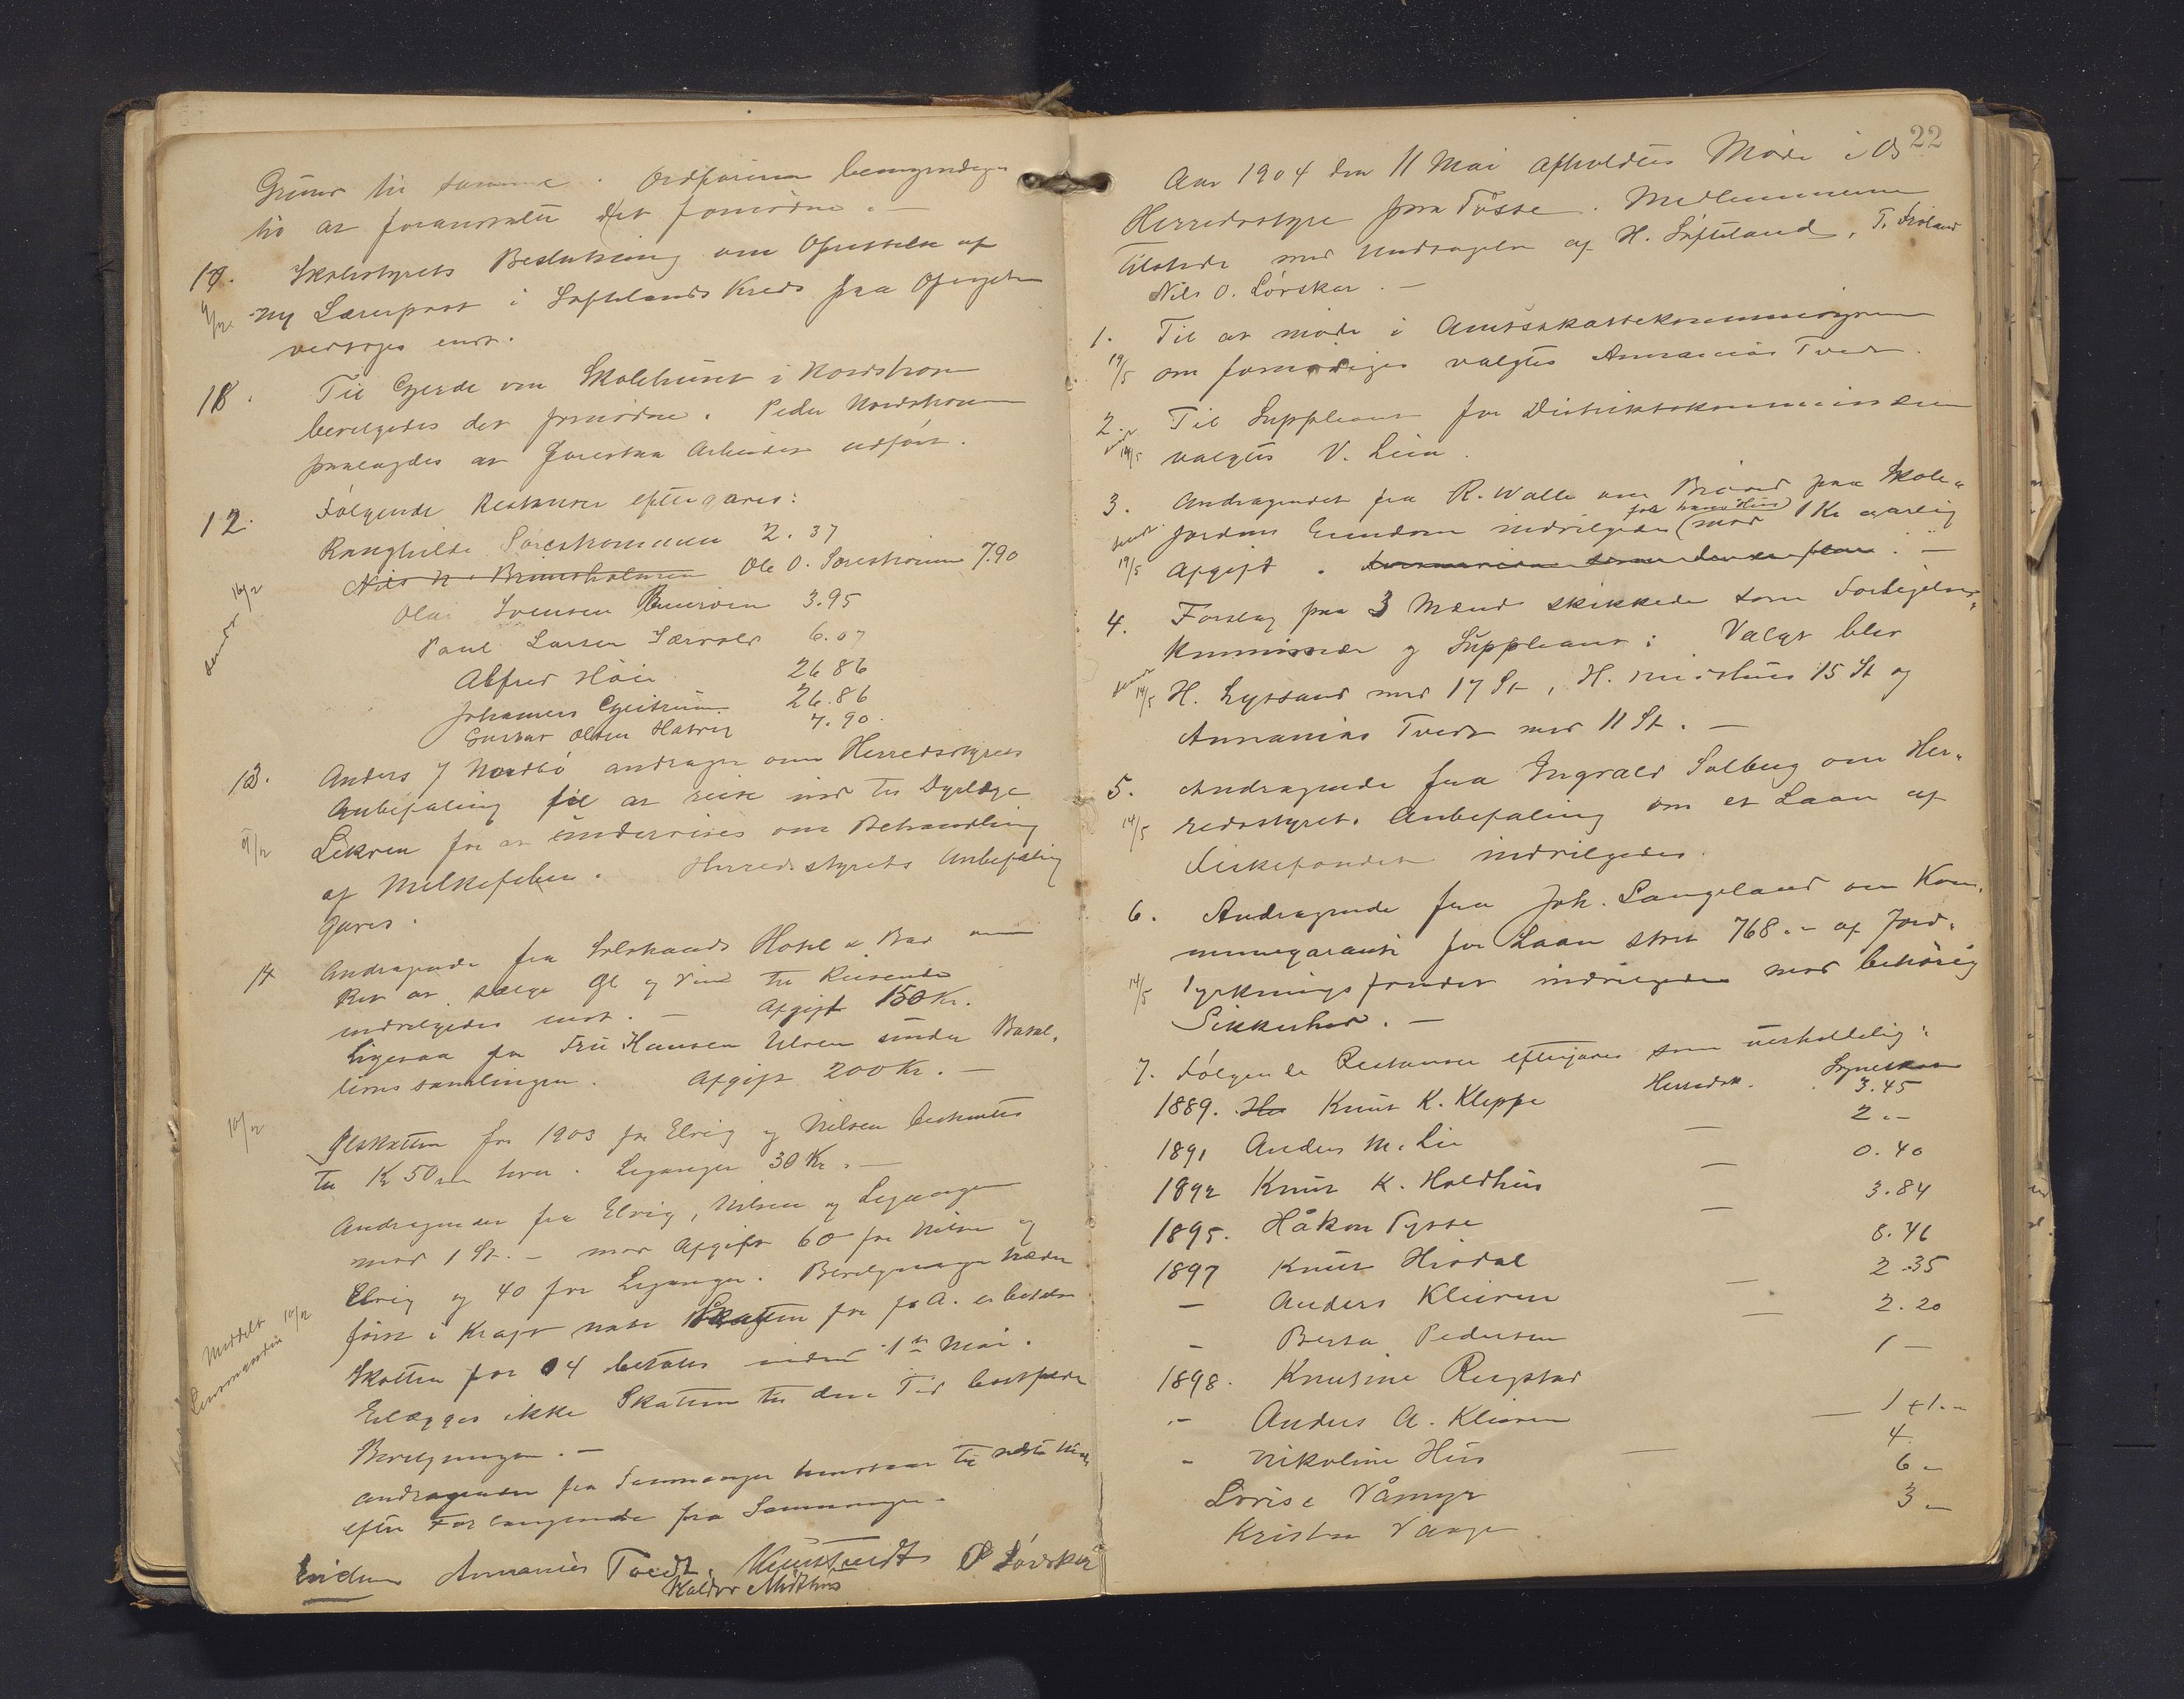 Grund til samme. Ordføreren bemyndiges
til at foranstalte det fornødne. —
10. Skolestyrets Beslutning om Oprettelse af
9/12. ny Lærerpost i Søftelands Kreds paa Opeigden
vedtoges enst.
11. Til Gjerde om Skolehuset i Nordstrøm
bevilgedes det fornødne. Peder Nordstrøm
paalagdes at forestaa Arbeidet udført.
12. Følgende Restanser eftergaves:
Ranghilde Sørestrømmen 2.37
Nils N. Brunsholmen Ole O. Sørestrømm 7.90
sendt 16/2
Olai Svensen 3.95
Paul Larsen Særvold 6.07
Alfred Høie 26 86
Johannes Gjeitrein 26.86
Gustav Olsen Hatvig 7.90.
13. Anders J Nordbø andrager om Herredsstyrets
Anbefaling til at reise ind til Dyrlæge
9/12 for at undervises om Behandling
af Melkefeber. Herredsstyrets Anbefaling
gaves.
14 Andragende fra Solstrands Hotel & Bad om
Ret at sælge Øl og Vin til Reisende
indvilgedes enst. — Afgift 150 Kr.
Ligesaa fra Fru Hansen Ulven under Batal,
lionssamlingen. Afgift 200 Kr. —
10/12
Ølskatten for 1903 for Elvig og Nilsen besluttes
til Kr 50 hver. Lepsøe 30 Kr. —
Andragender fra Elvig, Nilsen og
mod 1 St. — mod Afgift 60 for Nilsen og
Elvig og 40 for. Bevilgningen træder
Meddelt 10/12
Lensmanden
først i Kraft naar Skatten for f. A. er betalt
Skatten for 04 betales inden 1ste Mai.
Erlægges ikke Skatten til den Tid bortfalder
Bevilgningen. —
Andragender fra Samnanger henstaar til næste Møde
efter Forlangende fra Samnanger.
Ananias Tvedt. Knut Tvedt O Lørskar
Haldor Midthus
22
Aar 1904 den 11 Mai afholdtes Møde i Os
Herredsstyre paa Tøsse. Medlemmerne
tilstede med Undtagelse af H. Søfteland, T. Frøland
Nils O. Lørskar. —
1. Til at møde i Amtsskattekommissionen
19/5 om fornødiges valgtes Annanias Tvedt.
2. Til Suppleant for Distriktskommissionen
sendt 14/5 valgtes V. Lien.
3. Andragendet fra R. Walle om Brønd paa Skole-
for hans Hus
sendt jordens Eiendom indvilgedes (mod 1 Kr aarlig
19/5 Afgift. —
4. Forslag paa 3 Mænd skikkede som Forligelses-
kommissær og Suppleant: Valgt blev
sendt 14/5 H. Lyssand med 17 St, H. Midthus 15 St og
Annanias Tvedt med 11 St. —
5. Andragende fra Ingvald Solberg om Her-
14/5 redsstyrets Anbefaling om et Laan af
Fiskefondet indvilgedes.
6. Andragende fra Joh. Langeland om Kom-
munegaranti for Laan stort 768.- af Jord-
14/5 dyrkningsfondet indvilgedes mod behørig
Sikkerhed. —
7. Følgende Restanser eftergaves som uerholdelig:
Herredsk. Lyneskat
1889. Knut K. Kleppe 3.45
1891 Anders M. Lie — 2.-
1892 Knut K. Holdhus — 0.40
1895. Håkon Tysse — 3.84
1897 Knut Hisdal 8.46
— Anders Kleiven — 2.35
- Berta Pedersen — 2.20
1898. Knutsine Rugstad 1 —
.- Anders A. Kleiven — 1+1.-
- Nikoline Hus — 4
Lovise Våmyr 6 -
Kristen Vaage 3 -